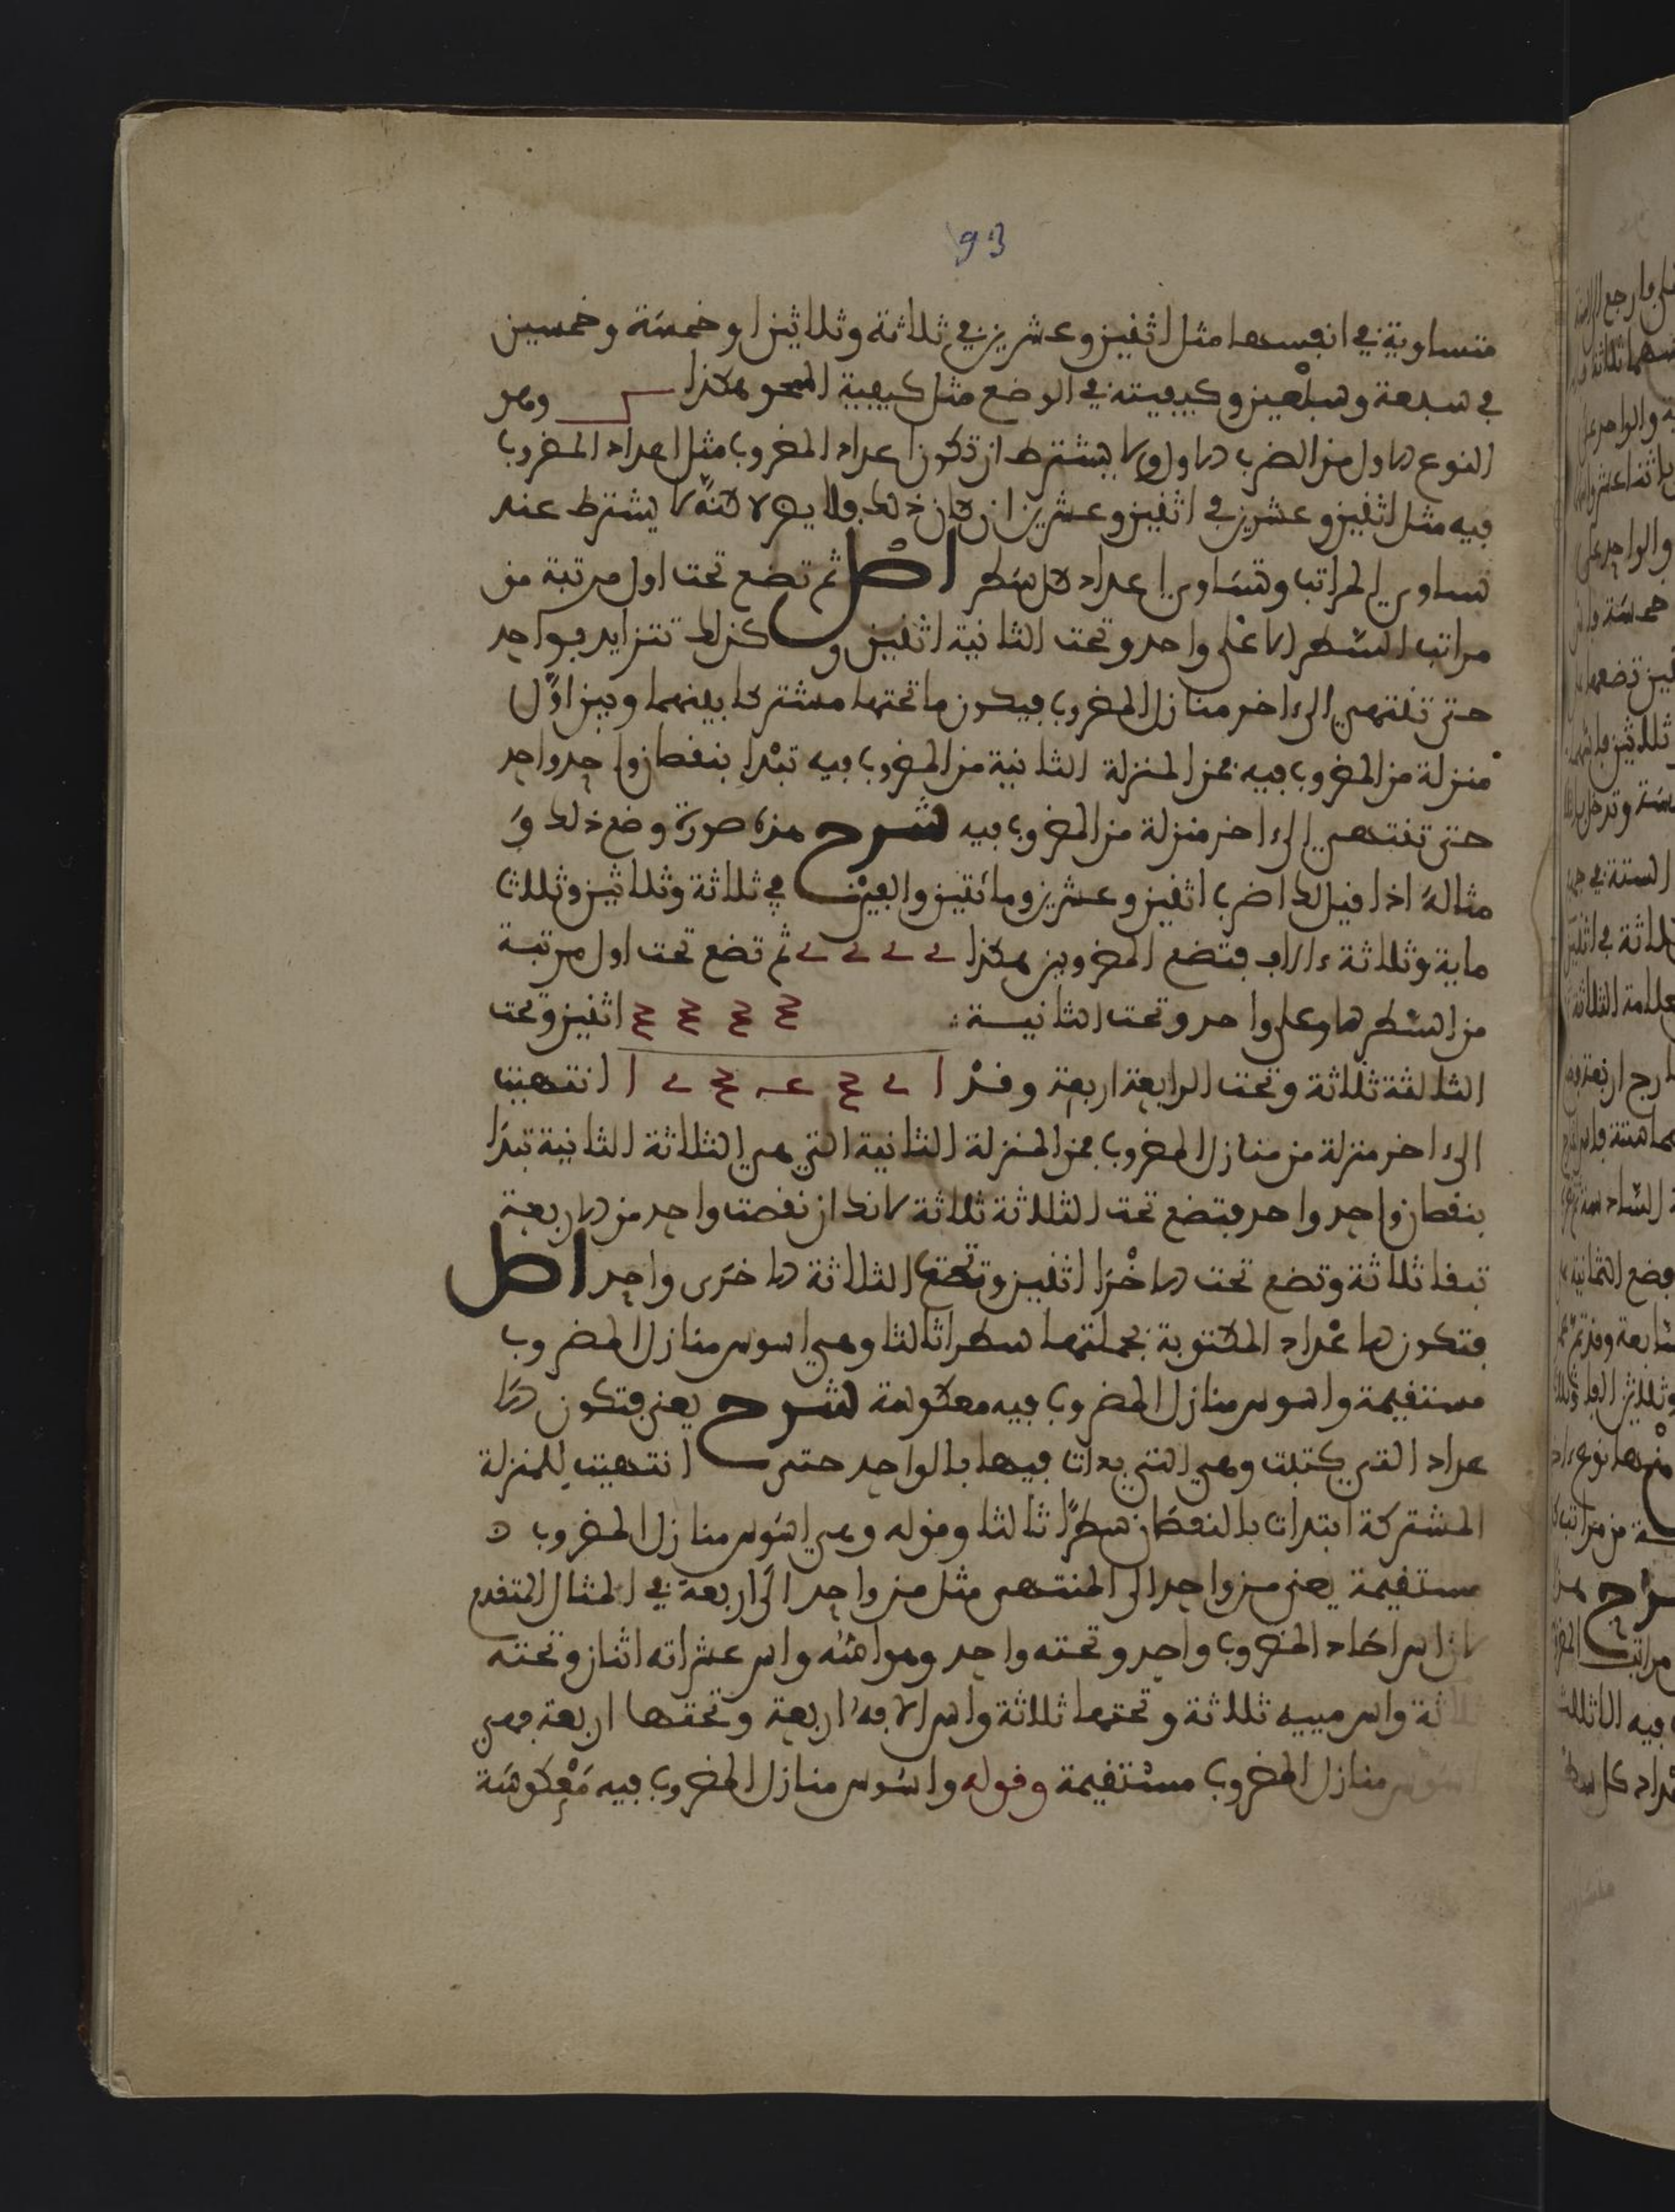 93
متساوية في انفسها مثل اثنين وعشرين في ثلاثة وثلاثين او خمسة وخمسين
في سبعة وسبعين وكيفيته في الوضع مثل كيفية المحو هكذا وهو
النوع الاول من الضرب الاول ولا يشترط ان تكون اعداد المضروب مثل اعداد المضروب
فيه مثل اثنين وعشرين في اثنين وعشرين ان كان ذلك والا يصح لاكنه لا يشترط عند
تساوي المراتب وتساوي اعداد كل سطر اصل ثم تضع تحت اول مرتبة من
مراتب السطر الاعلى واحد وتحت الثانية اثنين وكذلك تتزايد بواحد
حتى تنتهي الى اخر منازل المضروب فيكون ما تحتها مشتركا بينهما وبين اول
منزلة من المضروب فيه فمن المنزلة الثانية من المضروب فيه تبدا بنقصان واحد واحد
حتى تنتهي الى اخر منزلة من المضروب فيه شرح هذه صورة وضع ذلك و
مثاله اذا قيل لك اضرب اثنين وعشرين ومائتين والفين في ثلاثة وثلاثين وثلاث
ماية وثلاثة ءالاف فتضع المضروبين هكذا 2 2 2 2 ثم تضع تحت اول مرتبة
من السطر الاعلى واحد وتحت الثانية 3 3 3 3 اثنين وتحت
الثالثة ثلاثة وتحت الرابعة اربعة وقد 1 2 3 4 3 2 1 انتهيت
الى اخر منزلة من منازل المضروب فمن المنزلة الثانية التي هي الثلاثة الثانية تبدا
بنقصان واحد واحد فتضع تحت الثلاثة ثلاثة لانك ان نقصت واحد من الاربعة
تبقا ثلاثة وتضع تحت الاخرا اثنين وتحت الثلاثة الاخرى واحد اصل
فتكون الاعداد المكتوبة بجملتها سطرا ثالثا وهي اسوس منازل المضروب
مستقيمة واسوس منازل المضروب فيه معكوسة شرح يعني فتكون الا
عداد التي كتبت وهي التي بدات فيها بالواحد حتى انتهيت للمنزلة
المشتركة ابتدات بالنقصان سطرا ثالثا وقوله وهي اسوس منازل المضروب
مستقيمة يعني من واحد الى المنتهى مثل من واحد الى اربعة في المثال المتقدم
لان اس احاد المضروب واحد وتحته واحد وهو اسه واس عشراته اثنان وتحته
ثلاثة واس مييه ثلاثة وتحتها ثلاثة واس الافه اربعة وتحتها اربعة فهي
اسوس منازل المضروب مستقيمة وقوله واسوس منازل المضروب فيه معكوسة